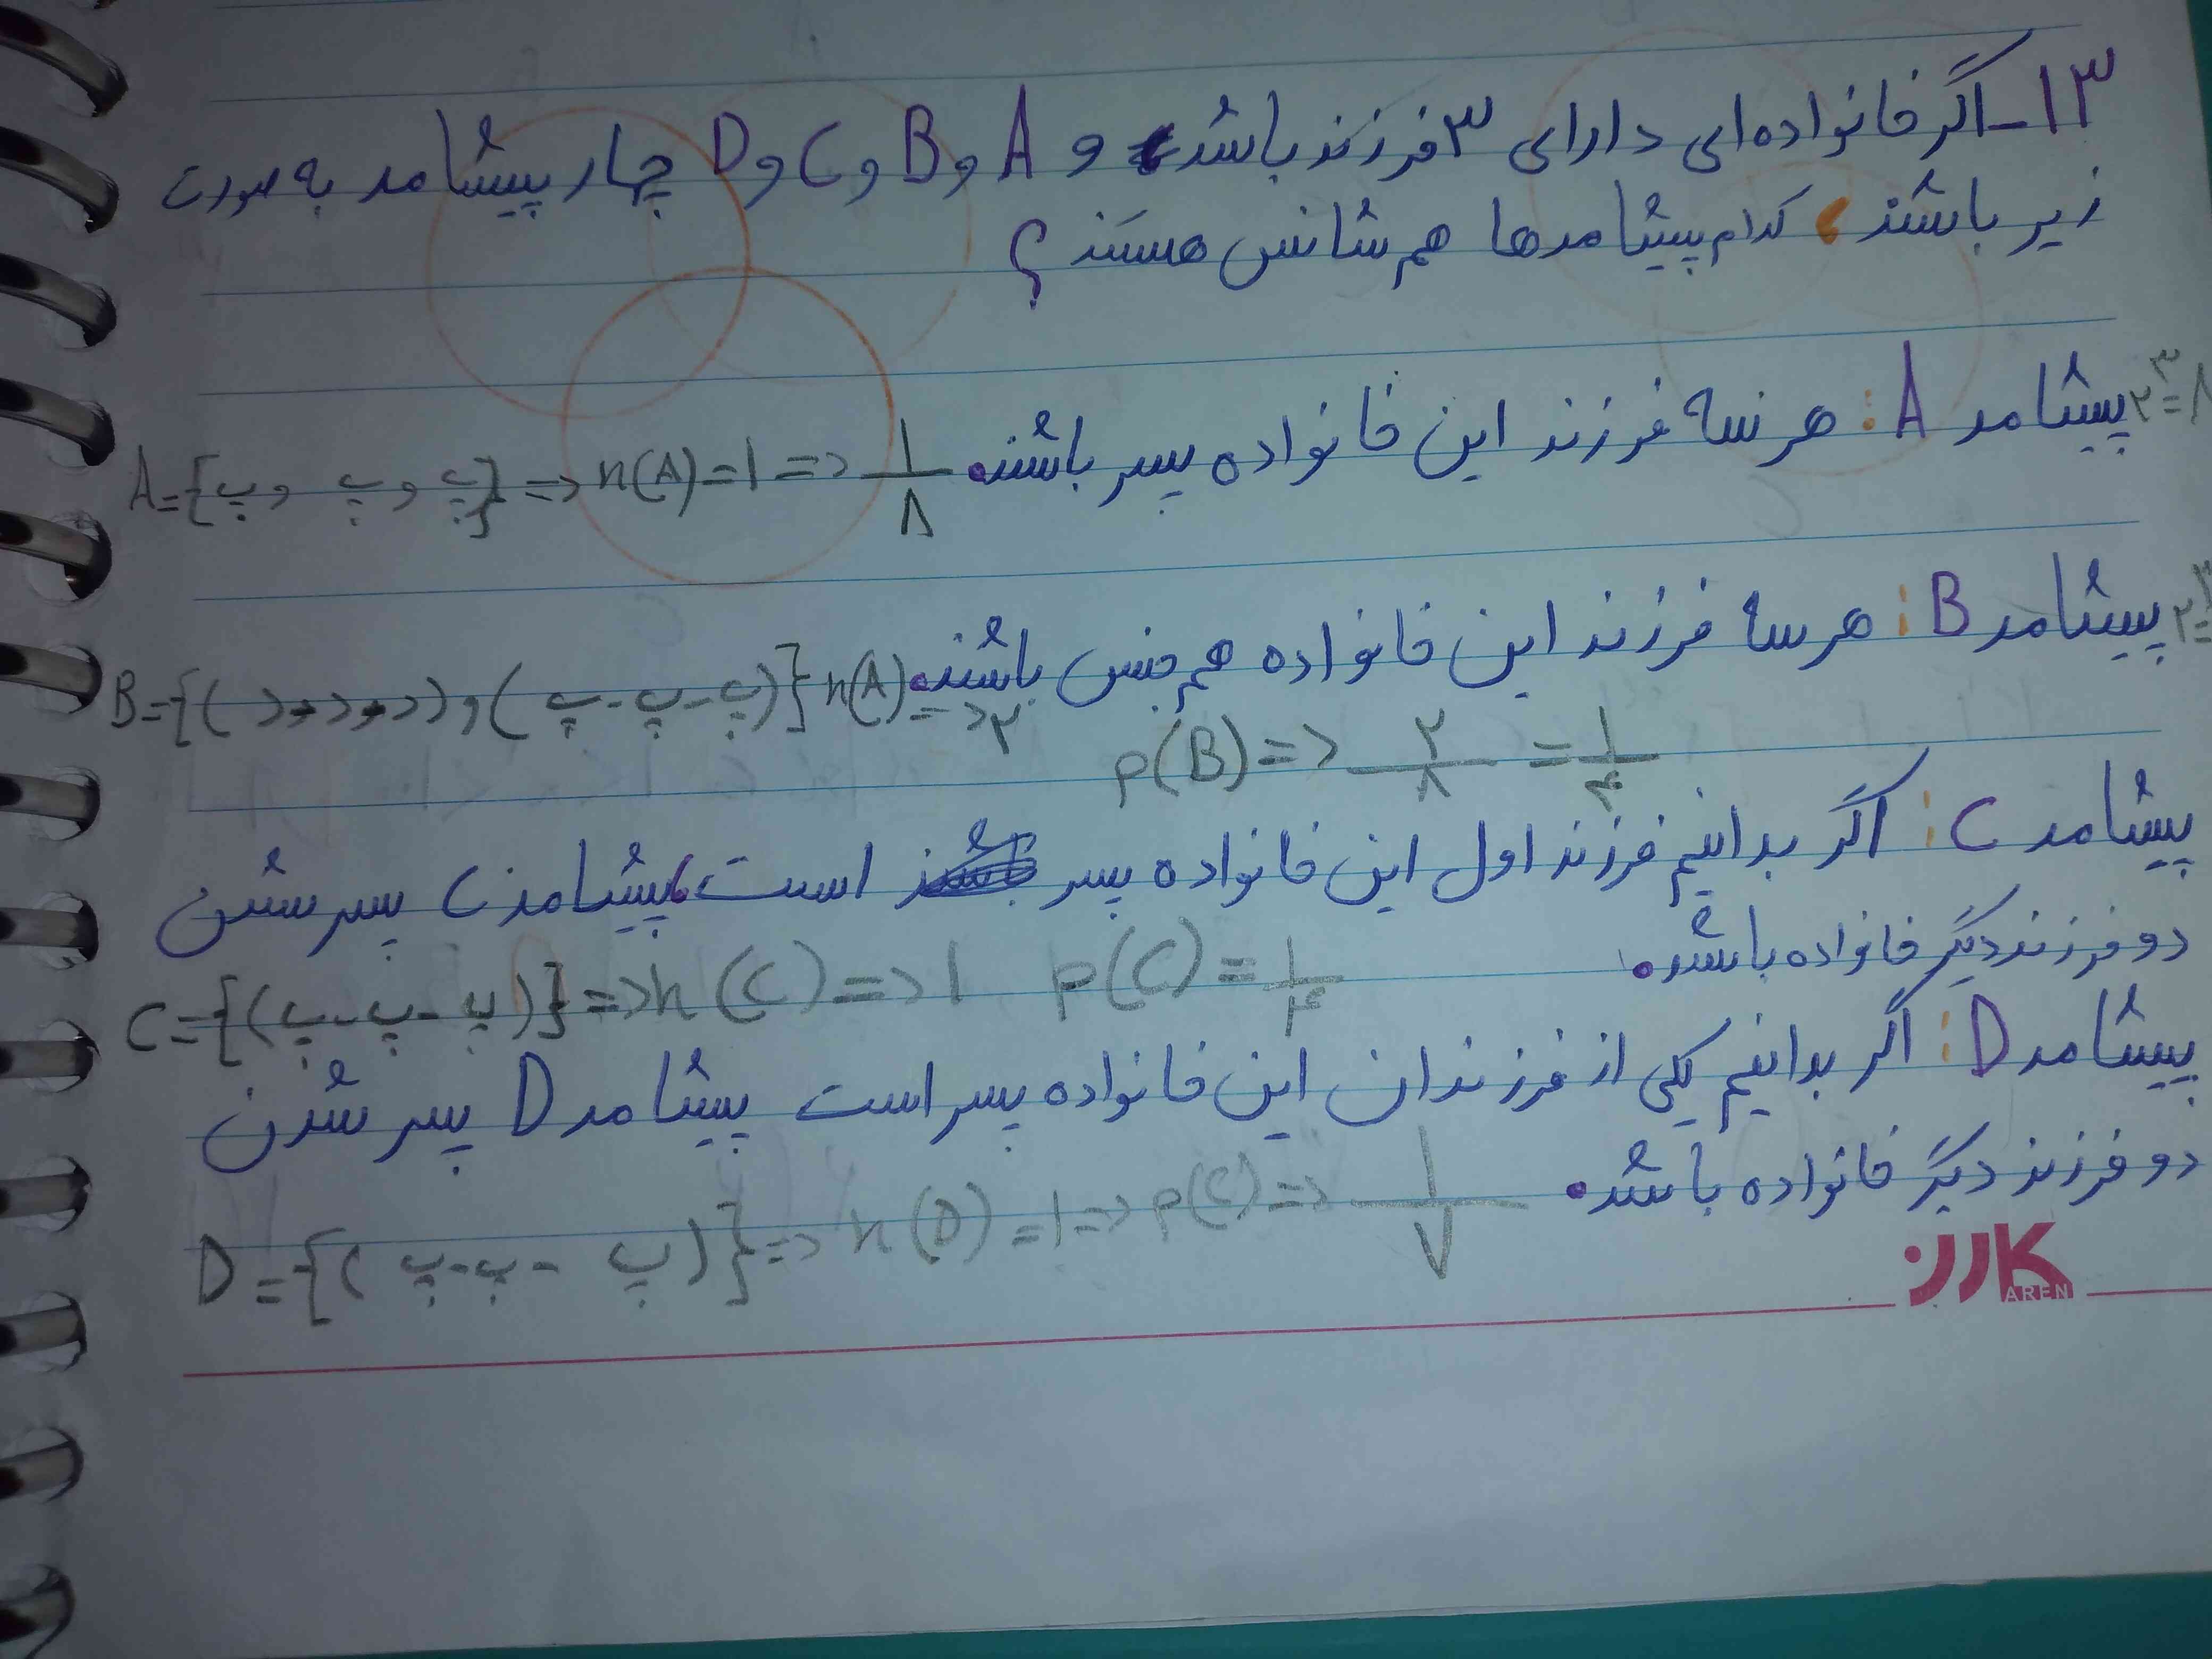 ۱۳- اگر خانواده‌ای دارای ۳ فرزند باشد و A و B و C و D چهار پیشامد به صورت
زیر باشند، کدام پیشامدها هم شانس هستند؟
پیشامد A: هر سه فرزند این خانواده پسر باشند.
۲^۳=۸
A={پ و پ و پ} => n(A)=۱ => ۱/۸
پیشامد B: هر سه فرزند این خانواده هم جنس باشند.
B={(د و د و د) و (پ-پ-پ)} n(A)=>۲
p(B)=> ۲/۸ = ۱/۴
پیشامد C: اگر بدانیم فرزند اول این خانواده پسر است، پیشامد C پسر شدن
دو فرزند دیگر خانواده باشد.
C={(پ-پ-پ)}=>n(C)=>۱ p(C)=۱/۴
پیشامد D: اگر بدانیم یکی از فرزندان این خانواده پسر است پیشامد D پسر شدن
دو فرزند دیگر خانواده باشد.
D={(پ-پ-پ)}=> n(D)=۱=> p(C)=> ۱/۷
کارن
KAREN